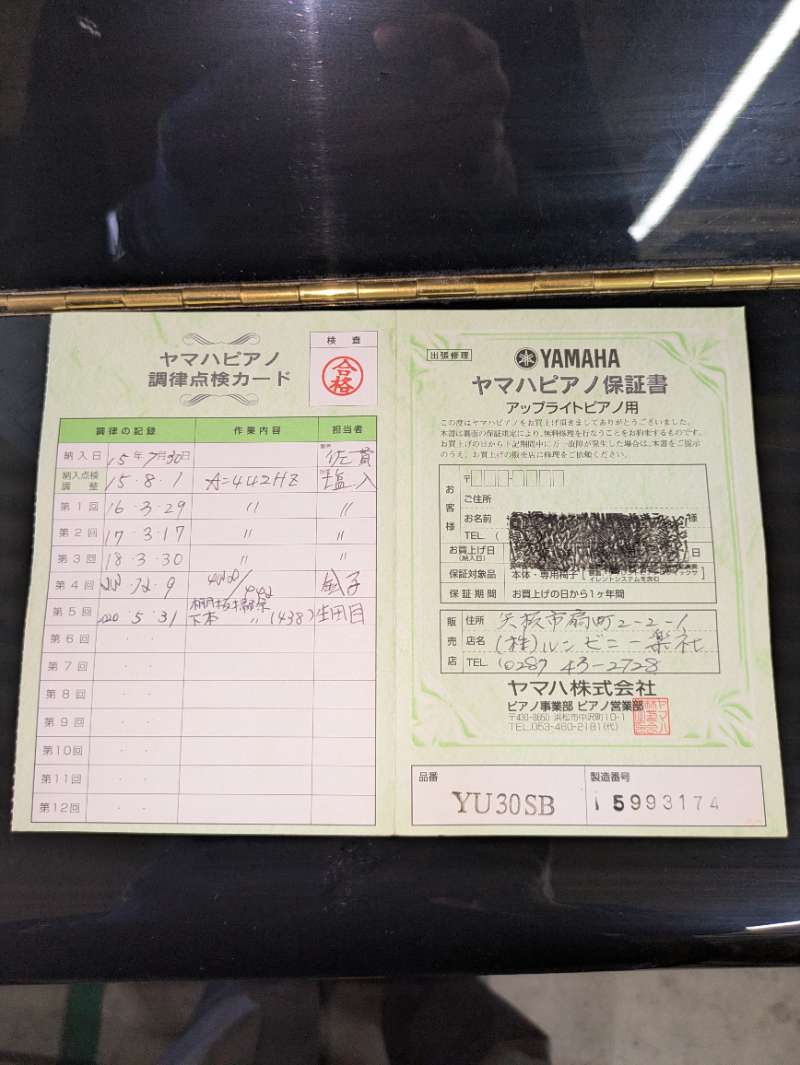 ヤマハピアノ
調律点検カード
検査
合格
調律の記録 作業内容 担当者
納入日 15年7月30日 佐貫
納入点検調整 15・8・1 A=442HZ 塩入
第1回 16・3・29 〃 〃
第2回 17・3・17 〃 〃
第3回 18・3・30 〃 〃
第4回 12・9 金子
第5回 5・31 (438) 生田目
第6回 ・ ・
第7回 ・ ・
第8回 ・ ・
第9回 ・ ・
第10回 ・ ・
第11回 ・ ・
第12回 ・ ・
出張修理
YAMAHA
ヤマハピアノ保証書
アップライトピアノ用
この度はヤマハピアノをお買上げ頂きましてありがとうございました。
本書は裏面の保証規定により、無料修理を行なうことをお約束するものです。
お買上げの日から下記期間中に万一故障が発生した場合は、本書をご提示
のうえ、お買上げの販売店に修理をご依頼ください。
お客様
〒
ご住所
お名前 様
TEL. (
お買上げ日(納入日) 日
保証対象品 本体・専用椅子
保証期間 お買上げの日から1ヶ年間
販売店
住所 矢板市扇町2-2-1
店名 (株)ルンビニー楽社
TEL. (0287 43-2728
ヤマハ株式会社
ピアノ事業部 ピアノ営業部
〒430-8650 浜松市中沢町10-1
TEL.053-460-2181(代)
品番 YU30SB
製造番号 i 5993174